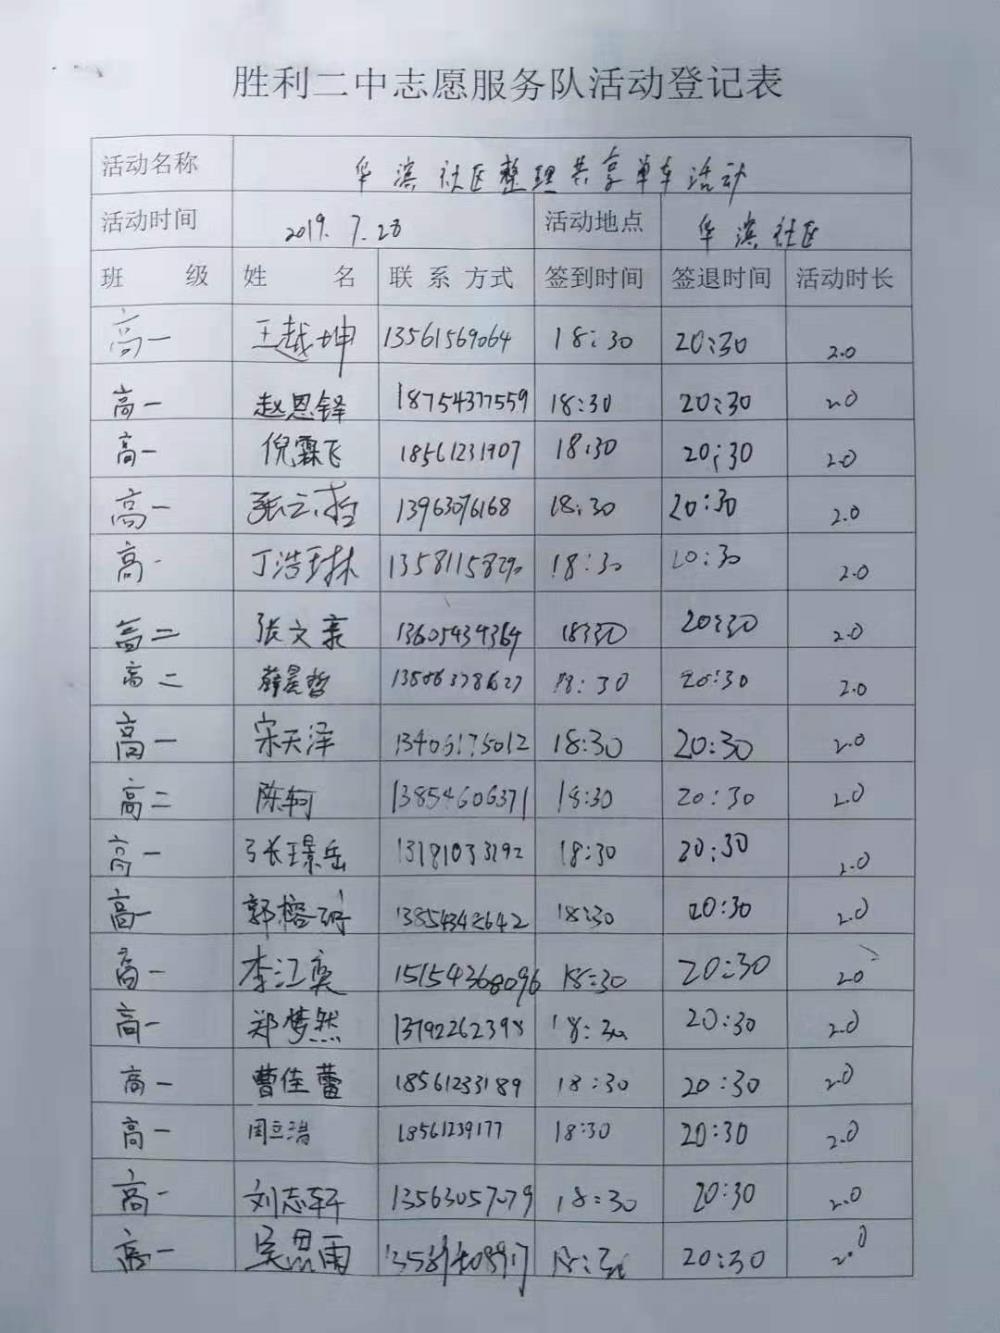 胜利二中志愿服务队活动登记表
活动名称 华滨社区整理共享单车活动
活动时间 2019.7.28 活动地点 华滨社区
班级 姓名 联系方式 签到时间 签退时间 活动时长
高一 王越坤 13561569064 18:30 20:30 2.0
高一 赵恩铎 18754377559 18:30 20:30 2.0
高一 倪霖飞 18561231907 18:30 20:30 2.0
高一 张云哲 13963076168 18:30 20:30 2.0
高一 丁浩琳 13581158290 18:30 20:30 2.0
高二 张文豪 13605434364 18:30 20:30 2.0
高二 薛晨哲 18:30 20:30 2.0
高一 宋天泽 13406175012 18:30 20:30 2.0
高二 陈轲 13854606371 18:30 20:30 2.0
高一 张璟岳 13181033192 18:30 20:30 2.0
高一 郭榕 13854342642 18:30 20:30 2.0
高一 李江奕 15154368096 18:30 20:30 2.0
高一 郑梦然 13792262398 18:30 20:30 2.0
高一 曹佳蕾 18561233189 18:30 20:30 2.0
高一 18561239177 18:30 20:30 2.0
高一 刘志轩 13563057079 18:30 20:30 2.0
高一 吴思雨 18:30 20:30 2.0